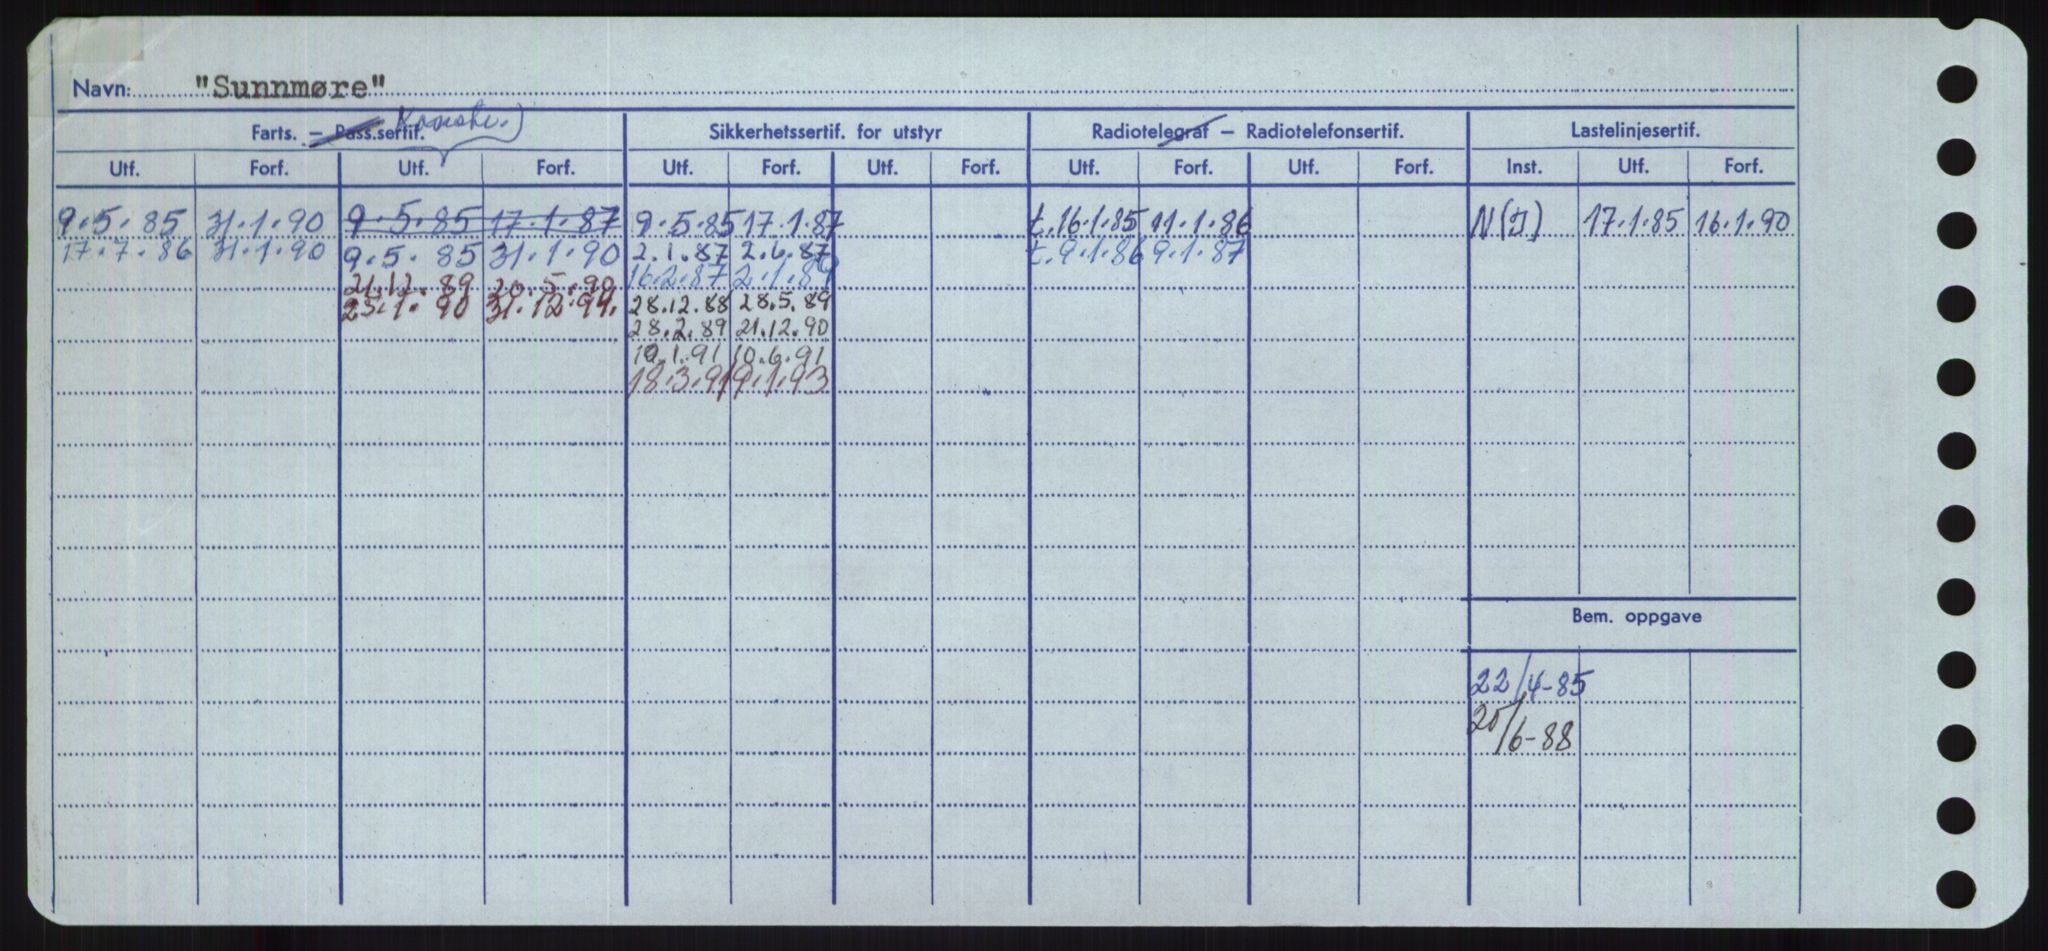 Navn: "Sunnmøre"
Farts. – Pass.sertif. Sikkerhetssertif. for utstyr Radiotelegraf – Radiotelefonsertif. Lastelinjesertif.
Utf. Forf. Utf. Forf. Utf. Forf. Utf. Forf. Utf. Forf. Utf. Forf. Inst. Utf. Forf.
9.5.85 31.1.90 9.5.85 17.1.87 9.5.85 17.1.87 t.16.1.85 11.1.86 N(I) 17.1.85 16.1.90
17.7.86 31.1.90 9.5.85 31.1.90 2.1.87 2.6.87 t.9.1.86 9.1.87
21.12.89 20.5.90 16.2.87 2.1.89
25.1.90 31.12.94. 28.12.88 28.5.89
28.2.89 21.12.90
10.1.91 10.6.91
18.3.91 9.1.93
Bem. oppgave
22/4-85
20/6-88